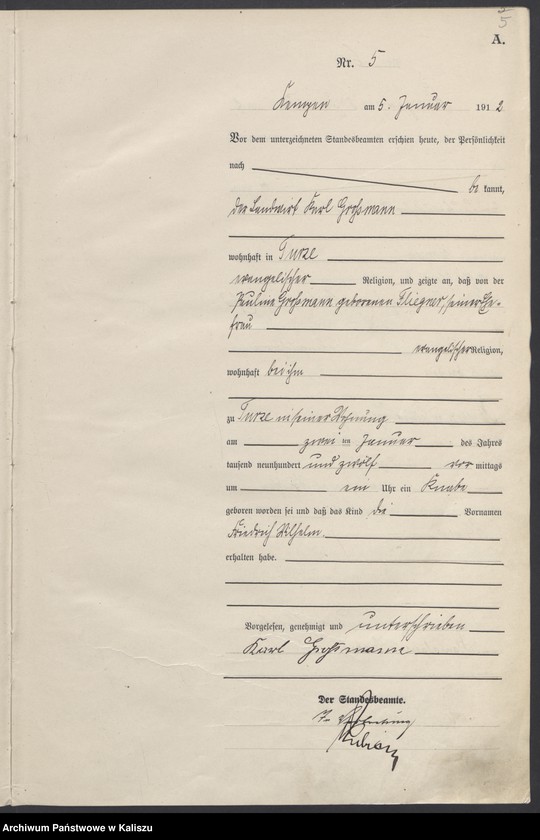 5
A.
Nr. 5
Kempen am 5. Januar 1912
Vor dem unterzeichneten Standesbeamten erschien heute, der Persönlichkeit
nach
be kannt,
der Landwirt Karl Großmann
wohnhaft in Turze
evangelischer Religion, und zeigte an, daß von der
Pauline Großmann geborenen Fliegner, seiner Ehe-
frau
evangelischer Religion,
wohnhaft bei ihm
zu Turze in seiner Wohnung
am zwei ten Januar des Jahres
tausend neunhundert und zwölf vor mittags
um ein Uhr ein Knabe
geboren worden sei und daß das Kind die Vornamen
Friedrich Wilhelm
erhalten habe.
Vorgelesen, genehmigt und unterschrieben
Karl Großmann
Der Standesbeamte.
In Vertretung
Archiwum Państwowe w Kaliszu